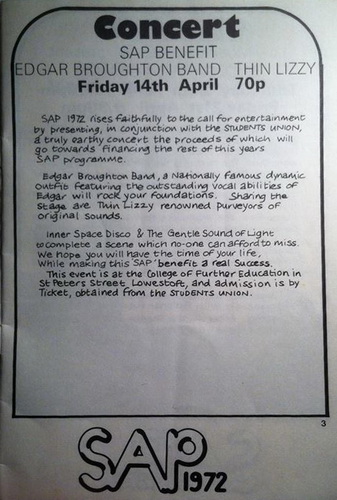 Concert
SAP BENEFIT
EDGAR BROUGHTON BAND THIN LIZZY
Friday 14th April 70p
SAP 1972 rises faithfully to the call for entertainment
by presenting, in conjunction with the STUDENTS UNION,
a truly earthy concert the proceeds of which will
go towards financing the rest of this years
SAP programme.
Edgar Broughton Band, a Nationally famous dynamic
outfit featuring the outstanding vocal abilities of
Edgar will rock your foundations. Sharing the
Stage are Thin Lizzy renowned purveyors of
original sounds.
Inner Space Disco & The Gentle Sound of Light
to complete a scene which no-one can afford to miss.
We hope you will have the time of your life,
while making this SAP benefit a real success.
This event is at the College of Further Education in
St Peters Street Lowestoft, and admission is by
Ticket, obtained from the STUDENTS UNION.
3
SAP 1972